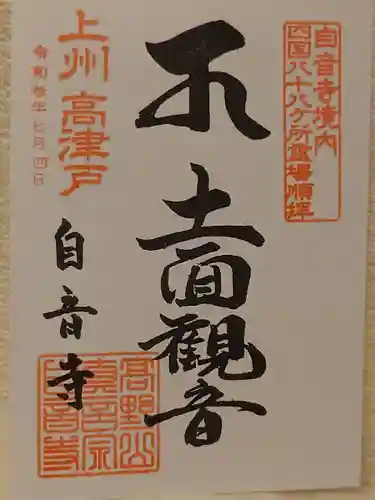 自音寺境内
四国八十八ケ所霊場順拝
十一面観音
上州 高津戸
令和参年七月四日
自音寺
高野山
真言宗
自音寺